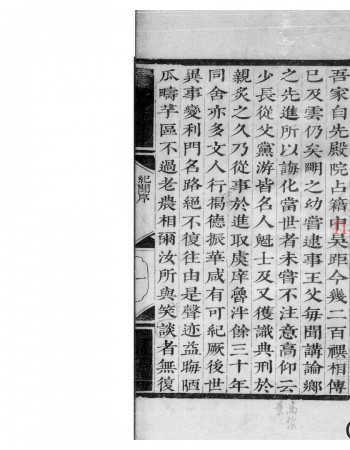 吾家自先殿院占籍中吳距今幾二百禩相傳
已及雲仍矣明之幼嘗逮事王父每聞講論鄉
之先進所以誨化當世者未嘗不注意高仰云
少長從父黨游皆名人魁士及又獲識典刑於
親炙之久乃從事於進取虞庠魯泮餘三十年
同舍亦多文人行揭德振華咸有可紀厥後世
異事變利門名路絕不復往由是聲迹益晦陋
瓜疇芋區不過老農相爾汝所與笑談者無復
紀聞序